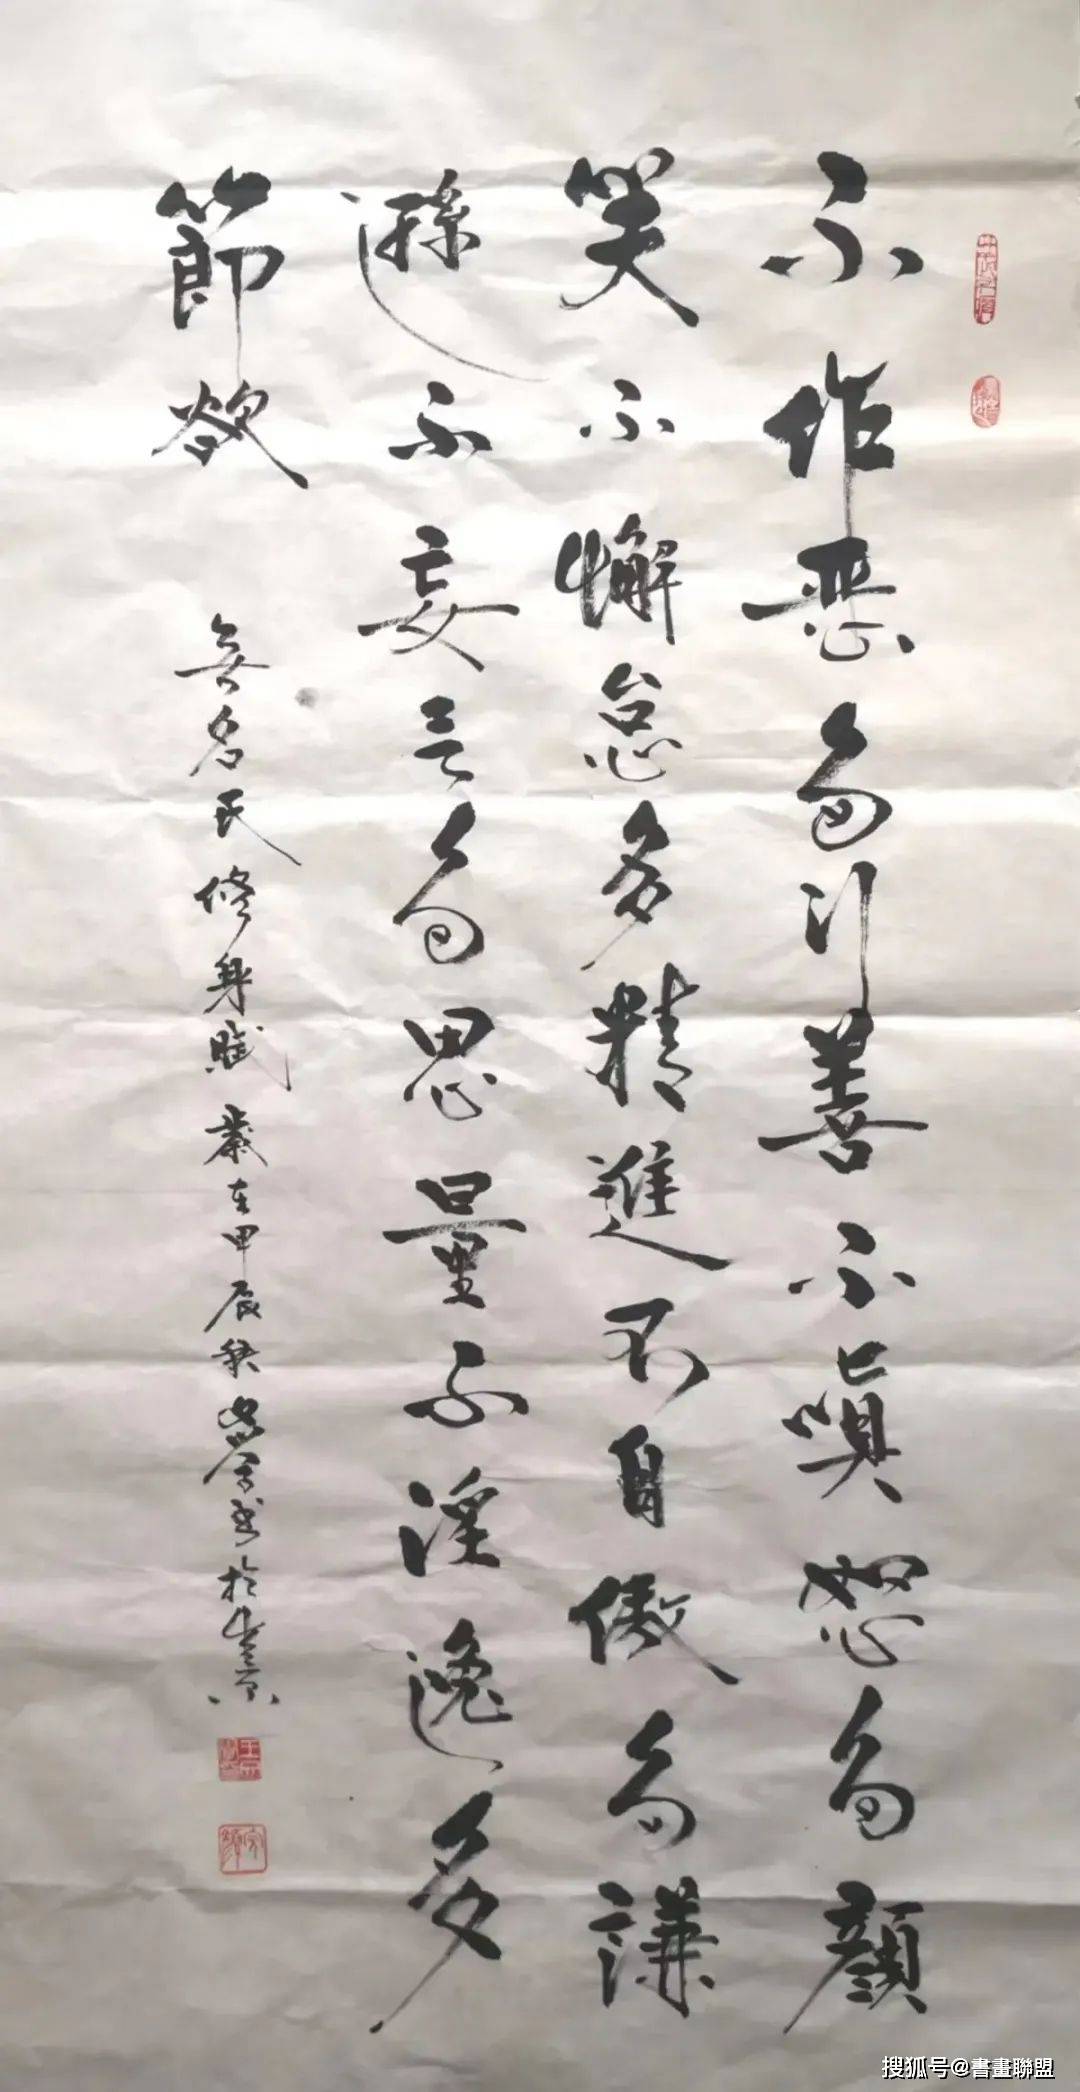 不作恶多引善不嗔怒多顔
笑不懈怠多精進不自傲多謙
遜不妄言多思量不淫逸多
節欲
無名氏修身賦歲在甲辰秋書於
搜狐号@書畫聯盟